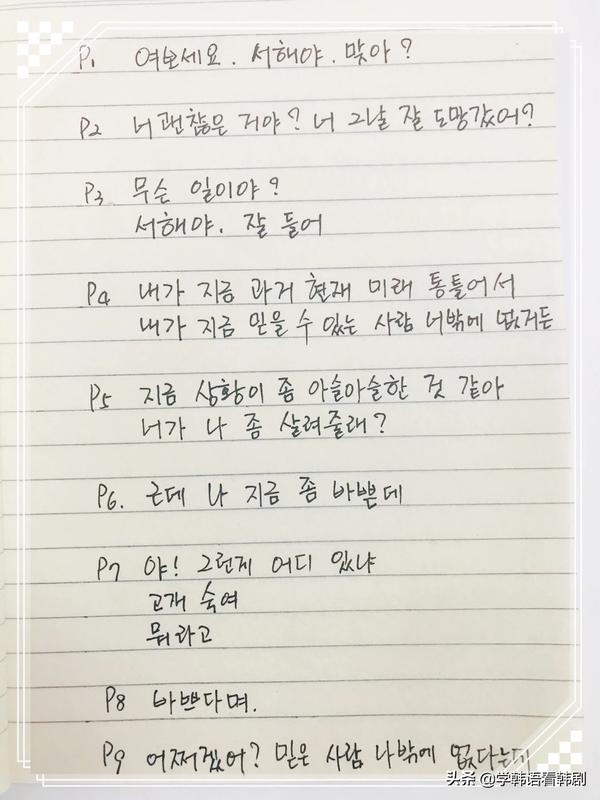 P1 여보세요. 서해야. 맞아?
P2 너 괜찮은 거야? 너 그날 잘 도망갔어?
P3 무슨 일이야?
서해야. 잘 들어
P4 내가 지금 과거 현재 미래 통틀어서
내가 지금 믿을 수 있는 사람 너밖에 없거든
P5 지금 상황이 좀 아슬아슬한 것 같아
너가 나 좀 살려줄래?
P6. 근데 나 지금 좀 바쁜데
P7 야! 그런게 어디 있냐
고개 숙여
뭐라고
P8 바쁘다며.
P9 어쩌겠어? 믿은 사람 나밖에 없다는데
头条 @学韩语看韩剧